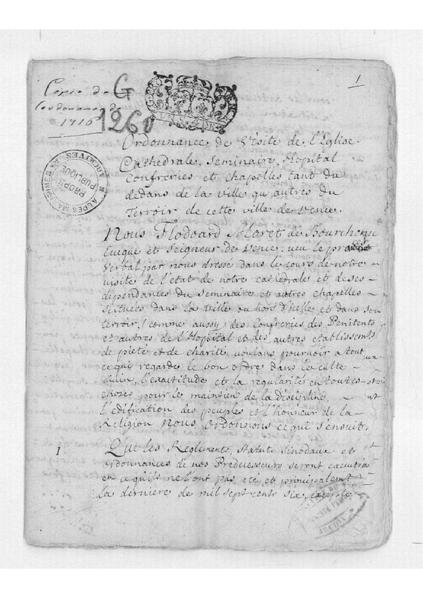 1
G 1260
1716
ARCHIVES
ALPES MARITIMES
Ordonnance de Visite de l'Eglise
Cathedrale, Seminaire, Hopital
Confreries et chapelles tant du
dedans de la ville qu'autres du
Terroir de cette ville de Vence.
Nous Flodoard Moret de Bourchenu
Eveque et Seigneur de Vence, veu le
Verbal par nous dressé dans le cours de notre
visite de l'etat de notre cathedrale et de ses
dependances du Seminaire et autres chapelles
Situées dans la ville ou hors d'icelle et dans son
terroir, comme aussy des Confreries des Penitents
et autres de l'Hopital et des autres etablissements
de pieté et de charité, voulans pourvoir a tout
ce qui regarde le bon ordre dans le culte
divin, l'exactitude et la regularité en toutes
choses pour le maintien de la discipline,
l'edification des peuples et l'honneur de la
Religion Nous Ordonnons ce qui s'ensuit.
1 Que les Reglements, statuts sinodaux et
ordonnances de nos Predecesseurs seront executés
en ce qu'ils ne l'ont pas eté et principalement
la derniere de mil sept cents six